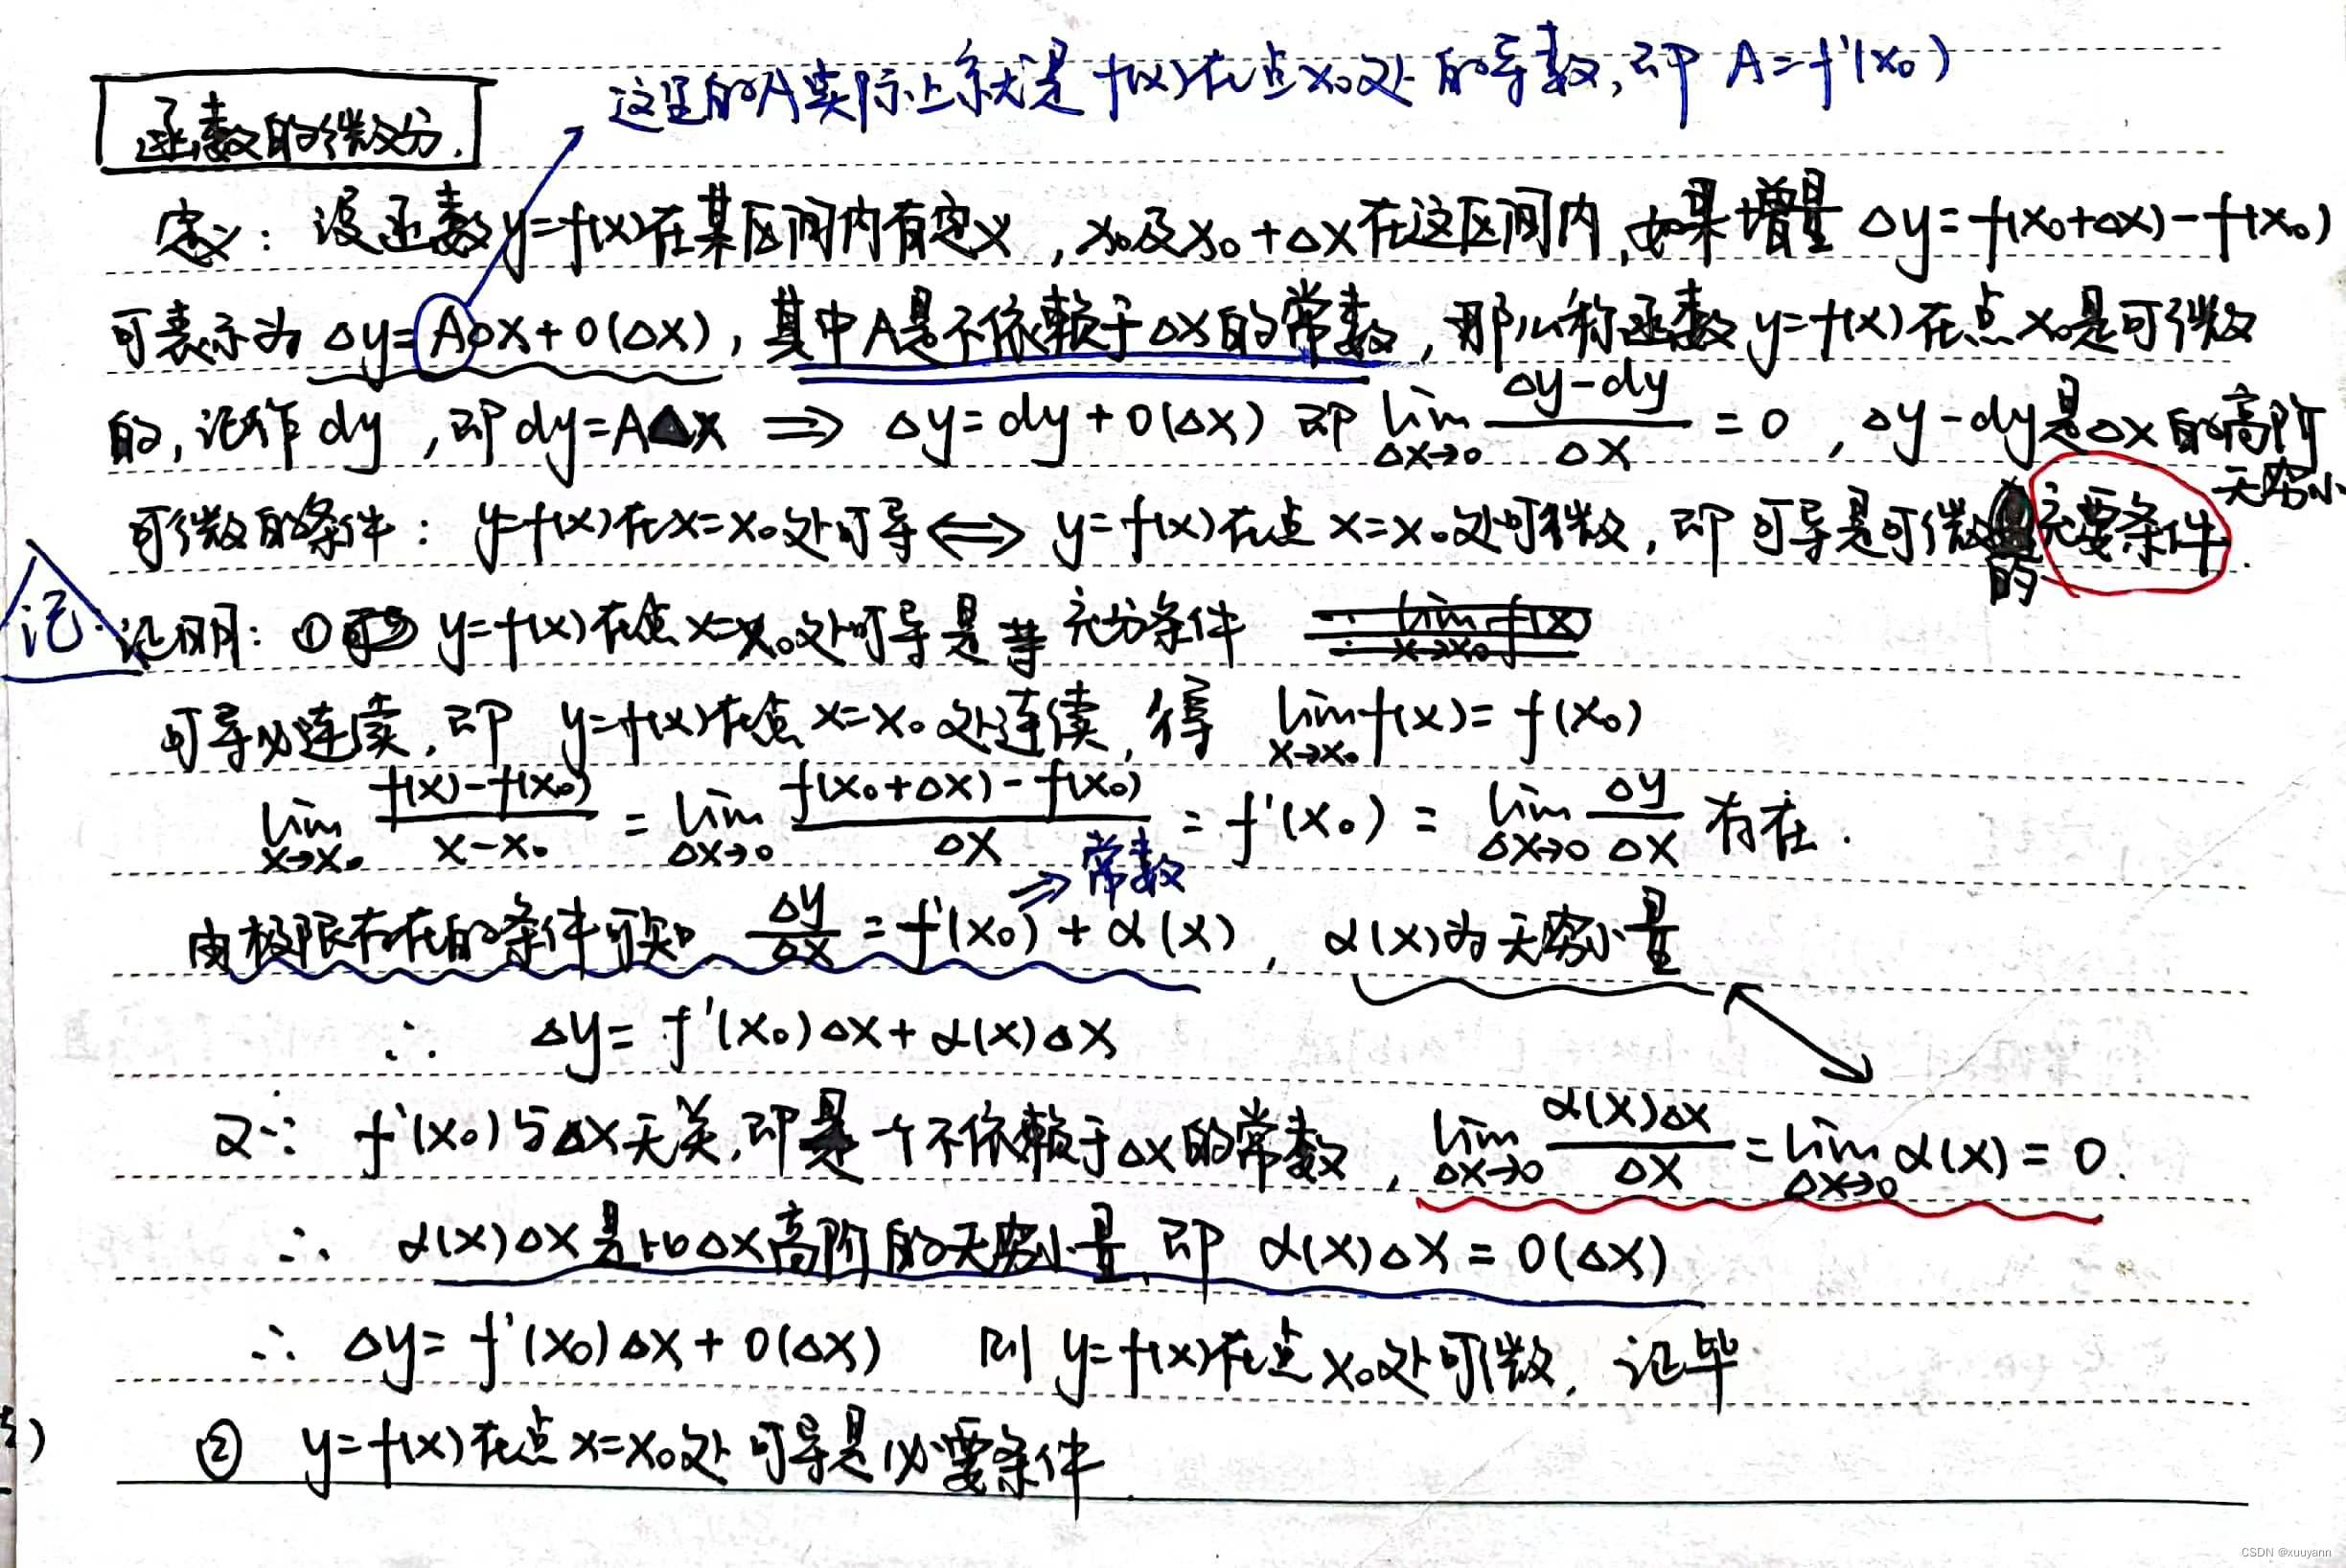 这里的A实际上就是f(x)在点x₀处的导数,即 A=f'(x₀)
函数的微分.
定义: 设函数y=f(x)在某区间内有定义,x₀及x₀+Δx在这区间内,如果增量 Δy=f(x₀+Δx)-f(x₀)
可表示为 Δy=AΔx+o(Δx), 其中A是不依赖于Δx的常数, 那么称函数y=f(x)在点x₀是可微
的,记作dy,即dy=AΔx ⇒ Δy=dy+o(Δx) 即 lim Δx→0 (Δy-dy)/Δx = 0, Δy-dy是Δx的高阶
无穷小
可微的条件: y=f(x)在x=x₀处可导⇔ y=f(x)在点x=x₀处可微,即可导是可微的充要条件.
记
证明: ① y=f(x)在点x=x₀处可导是充分条件
可导必连续,即 y=f(x)在点x=x₀处连续,得 lim x→x₀ f(x)=f(x₀)
lim x→x₀ (f(x)-f(x₀))/(x-x₀) = lim Δx→0 (f(x₀+Δx)-f(x₀))/Δx = f'(x₀) = lim Δx→0 Δy/Δx 存在.
⇒常数
由极限存在的条件可知, Δy/Δx = f'(x₀)+α(x), α(x)为无穷小量
∴ Δy=f'(x₀)Δx+α(x)Δx
又∵ f'(x₀)与Δx无关,即是一个不依赖于Δx的常数, lim Δx→0 α(x)Δx/Δx = lim Δx→0 α(x)=0.
∴ α(x)Δx是比Δx高阶的无穷小量,即 α(x)Δx=o(Δx)
∴ Δy=f'(x₀)Δx+o(Δx) 则y=f(x)在点x₀处可微, 证毕.
② y=f(x)在点x=x₀处可导是必要条件.
CSDN @xuuyann